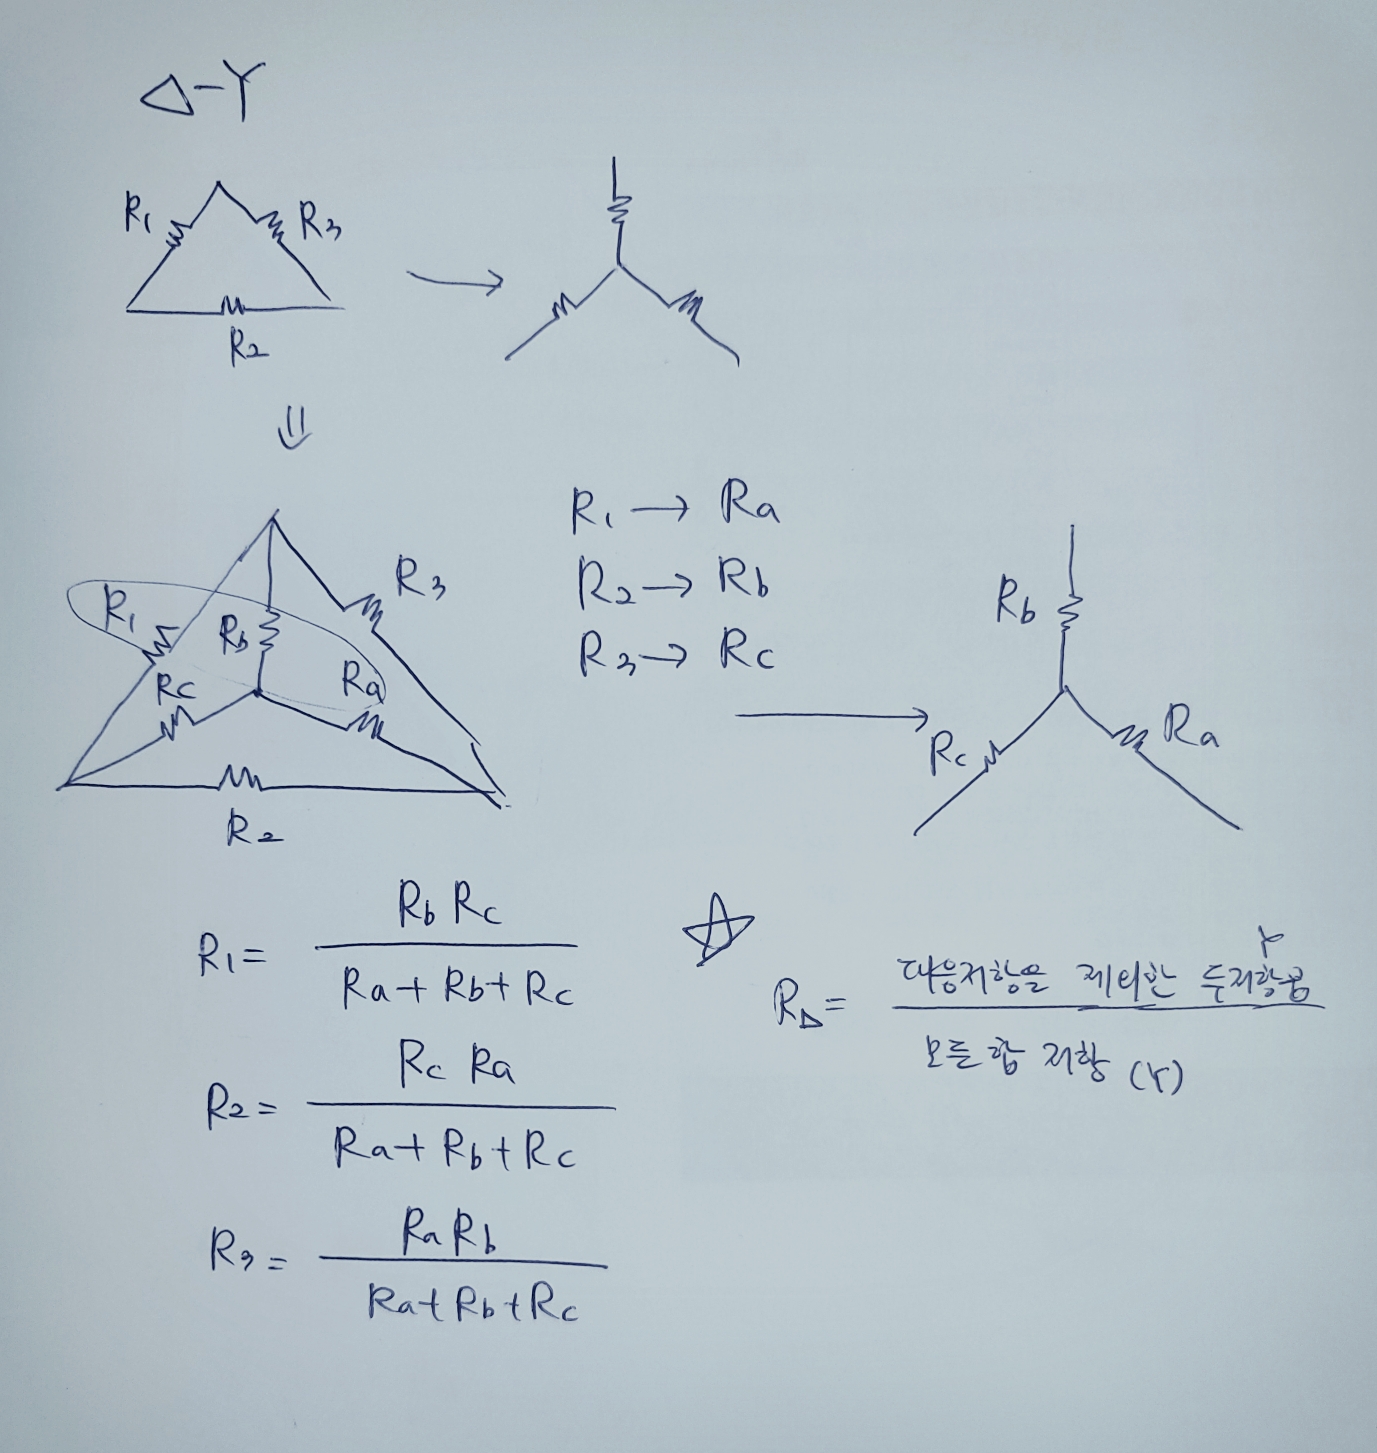 △-Y
R1 R3
R2
R1 → Ra
R2 → Rb
R3 → Rc
R1 Rb R3
Rc Ra
R2
Rb
Rc Ra
R1 = Rb Rc / Ra + Rb + Rc
R2 = Rc Ra / Ra + Rb + Rc
R3 = Ra Rb / Ra + Rb + Rc
☆ R△ = 대응저항을 제외한 두저항곱 Y / 모든 합 저항 (Y)